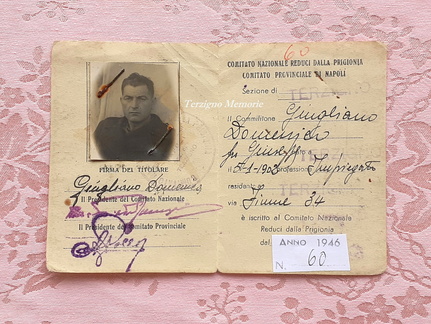 Terzigno Memorie
FIRMA DEL TITOLARE
Giugliano Domenico
Il Presidente del Comitato Nazionale
Il Presidente del Comitato Provinciale
60
COMITATO NAZIONALE REDUCI DALLA PRIGIONIA
COMITATO PROVINCIALE DI NAPOLI
Sezione di TERZIGNO
Il Commilitone Giugliano
Domenico
fu Giuseppe
5-1-1902 Professione Impiegato
residente TERZIGNO
via Fiume 34
è iscritto al Comitato Nazionale
Reduci dalla Prigionia
dal ANNO 1946
N. 60
Terzigno Memorie